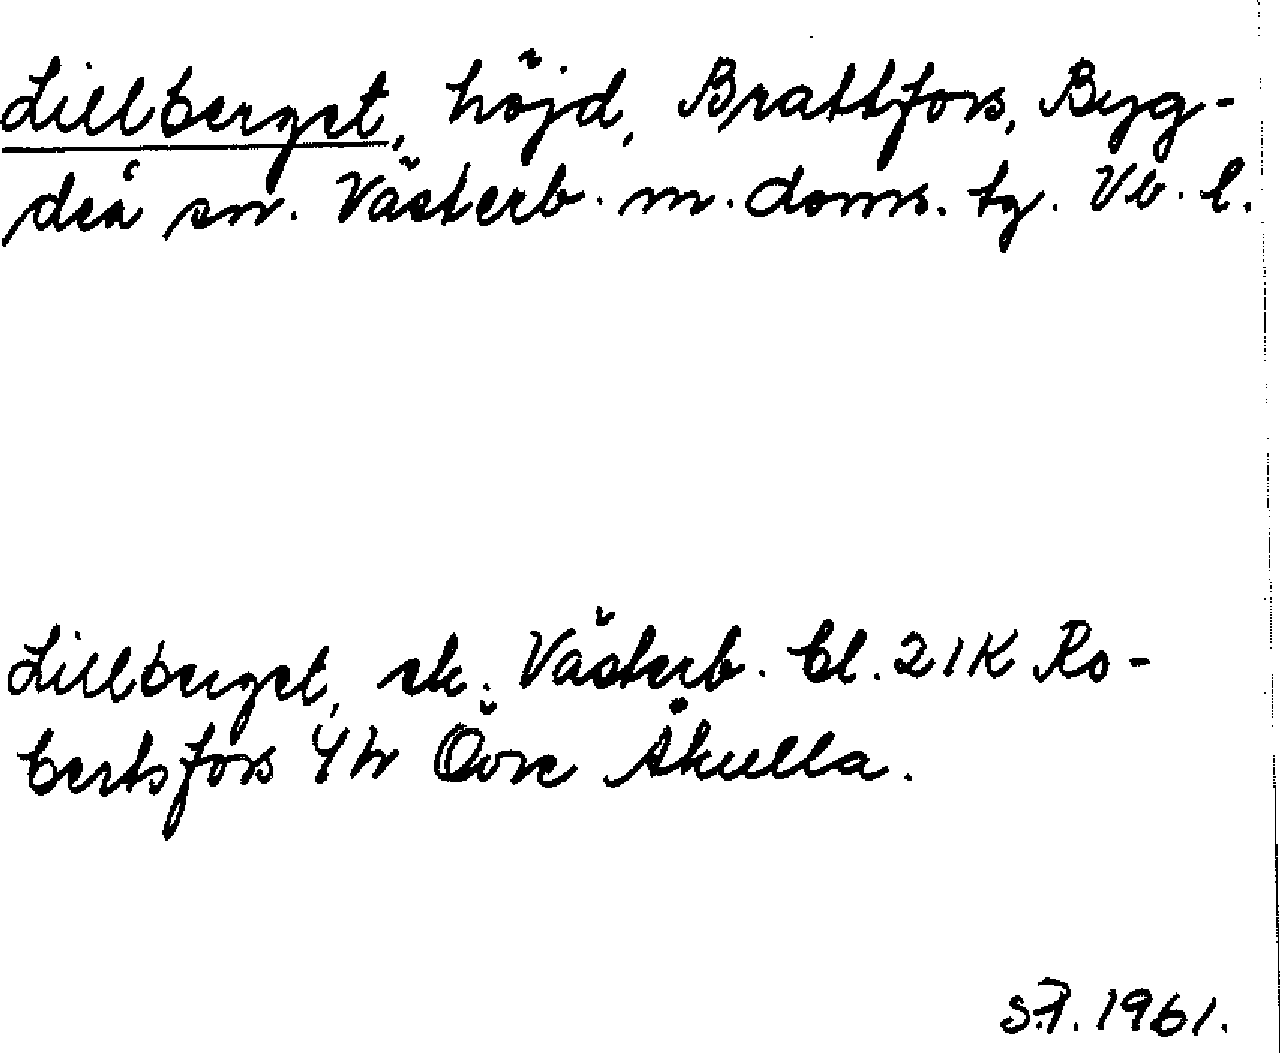 Lillberget, höjd, Brattfors, Byg-
deå sn. Västerb. m. doms. tg. Vb. l.
Lillberget, ek. Västerb. bl. 21K Ro-
bertsfors 4h Övre Åkulla.
S.P. 1961.